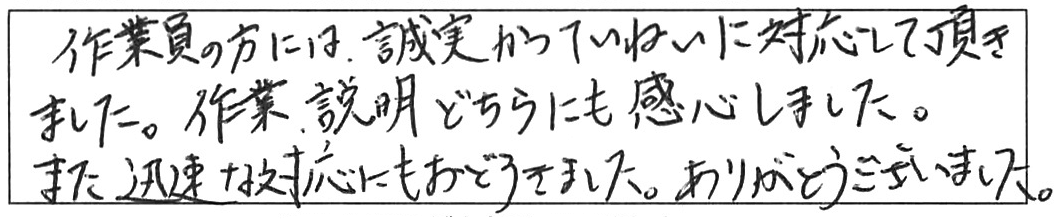 作業員の方には、誠実かつていねいに対応して頂き
ました。作業、説明どちらにも感心しました。
また迅速な対応にもおどろきました。ありがとうございました。